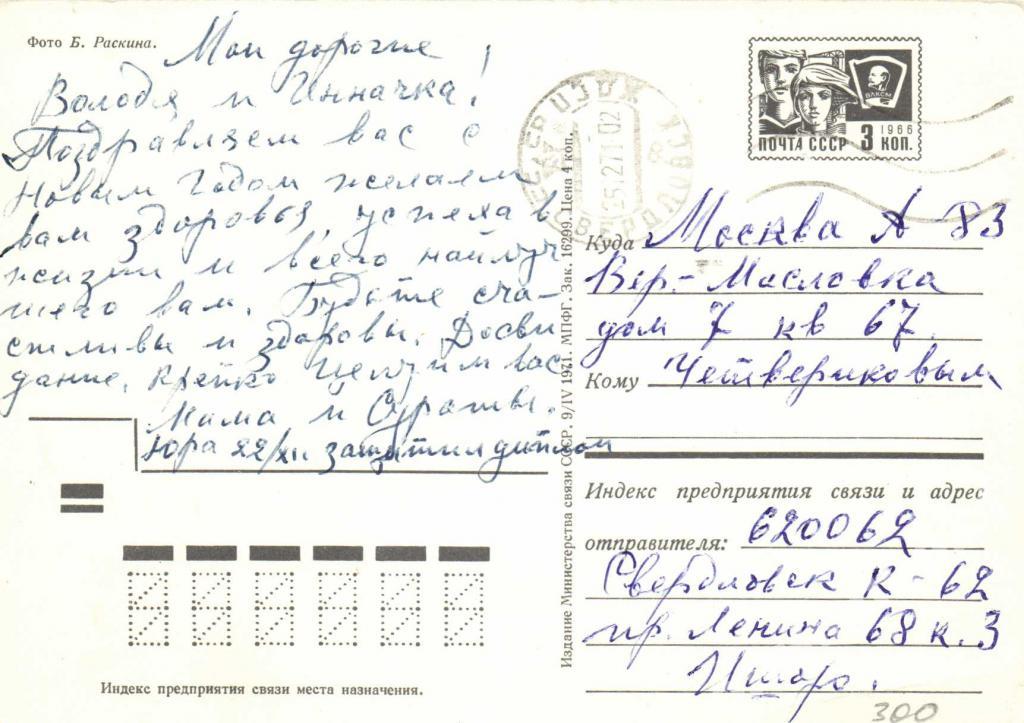 Фото Б. Раскина.
Мои дорогие
Володя и Инначка!
Поздравляем вас с
Новым Годом желаем
вам здоровья успеха в
жизни и всего наилуч
шего вам. Будьте сча-
стливы и здоровы. Досви
дание. Крепко целуем вас
Мама и
Юра 22/XII защитил диплом
Индекс предприятия связи места назначения.
Издание Министерства связи СССР. 9/IV 1971. МПФГ. Зак. 16299. Цена 4 коп.
ВЛКСМ
1966
ПОЧТА СССР 3 КОП.
Куда Москва А 83
Вер.-Масловка
дом 7 кв 67
Кому Четвериковым
Индекс предприятия связи и адрес
отправителя: 620062
Свердловск К-62
пр. Ленина 68 к. 3
300